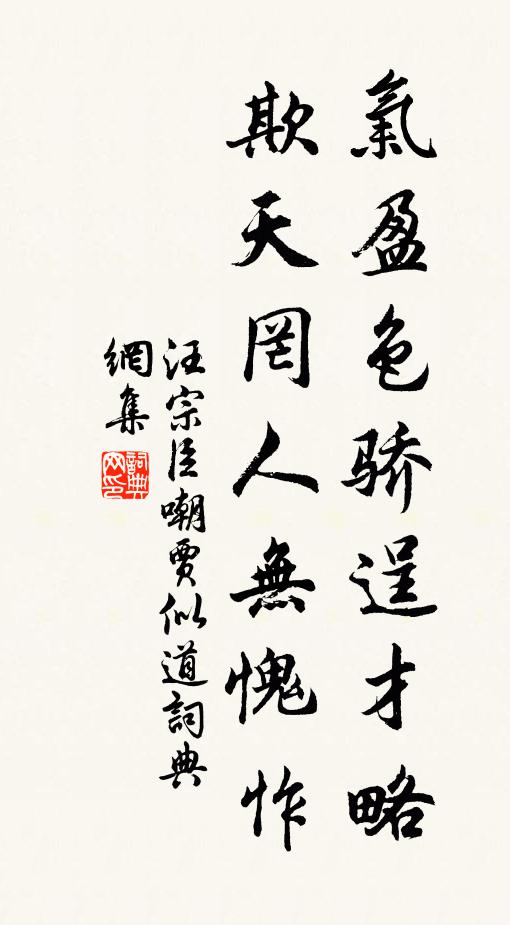 氣盈色骄逞才略
欺天罔人無愧怍
汪宗臣嘲賈似道詞典
網集
詞典
网印